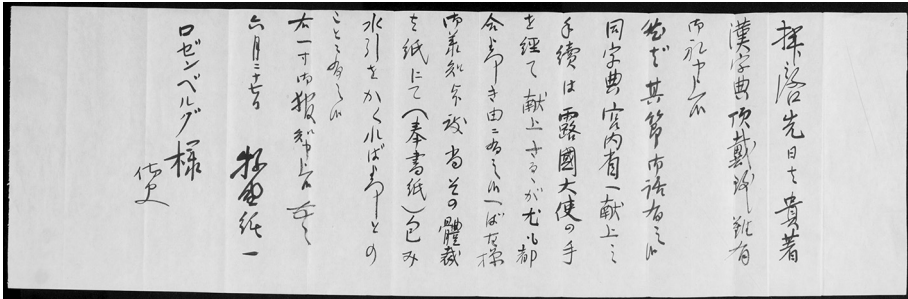 拝啓 先日は貴著
漢字典頂戴誠難有
御礼申上候
然ば其節御話有之候
同字典宮内省へ献上之
手續は露國大使の手
を經て献上するが尤も都
合よき由ニ有之候へば左様
御承知 尚その體裁
は紙にて（奉書紙）包み
水引をかくればよしとの
ことに有之候
右一寸御報知申上候
六月二十七日
ロゼンベルグ様
侍史